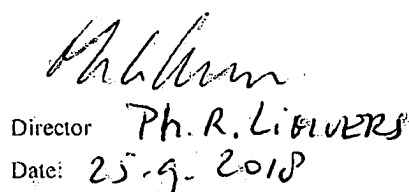 Director Ph. R. LiELVERS
Date: 25.9. 2018